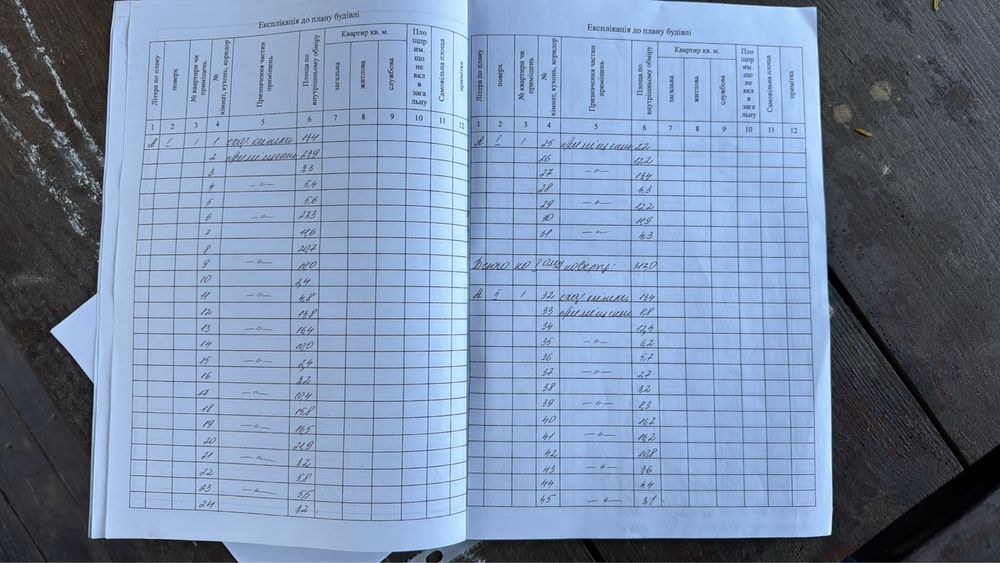 Експлікація до плану будівлі
Літера по плану | поверх | № квартири чи приміщень | № кімнат, кухонь, коридор | Призначення частин приміщень | Площа по внутрішньому обміру | Квартир кв. м. | загальна | житлова | службова | Площ прим. що не вкл в загальну | Самовільна площа | примітка
1 2 3 4 5 6 7 8 9 10 11 12
А І 1 1 сход клітка 13,4
2 приміщення 23,9
3 3,3
4 —"— 5,4
5 5,6
6 —"— 23,3
7 11,6
8 20,7
9 —"— 10,0
10 2,4
11 —"— 4,8
12 13,8
13 —"— 16,4
14 10,0
15 —"— 2,4
16 3,2
17 —"— 10,4
18 15,8
19 —"— 16,5
20 21,9
21 —"— 3,2
22 5,8
23 —"— 5,5
24 3,2
Експлікація до плану будівлі
Літера по плану | поверх | № квартири чи приміщень | № кімнат, кухонь, коридор | Призначення частин приміщень | Площа по внутрішньому обміру | Квартир кв. м. | загальна | житлова | службова | Площ прим. що не вкл в загальну | Самовільна площа | примітка
1 2 3 4 5 6 7 8 9 10 11 12
А І 1 25 приміщення 2,2
26 12,2
27 —"— 13,4
28 4,3
29 —"— 12,2
30 11,9
31 —"— 4,3
Всього по І поверху: 317,0
А ІІ 1 32 сход клітка 13,4
33 приміщення 8,8
34 12,4
35 —"— 6,2
36 5,7
37 —"— 2,7
38 3,2
39 —"— 8,3
40 16,7
41 —"— 16,2
42 10,8
43 —"— 3,6
44 4,4
45 —"— 3,1